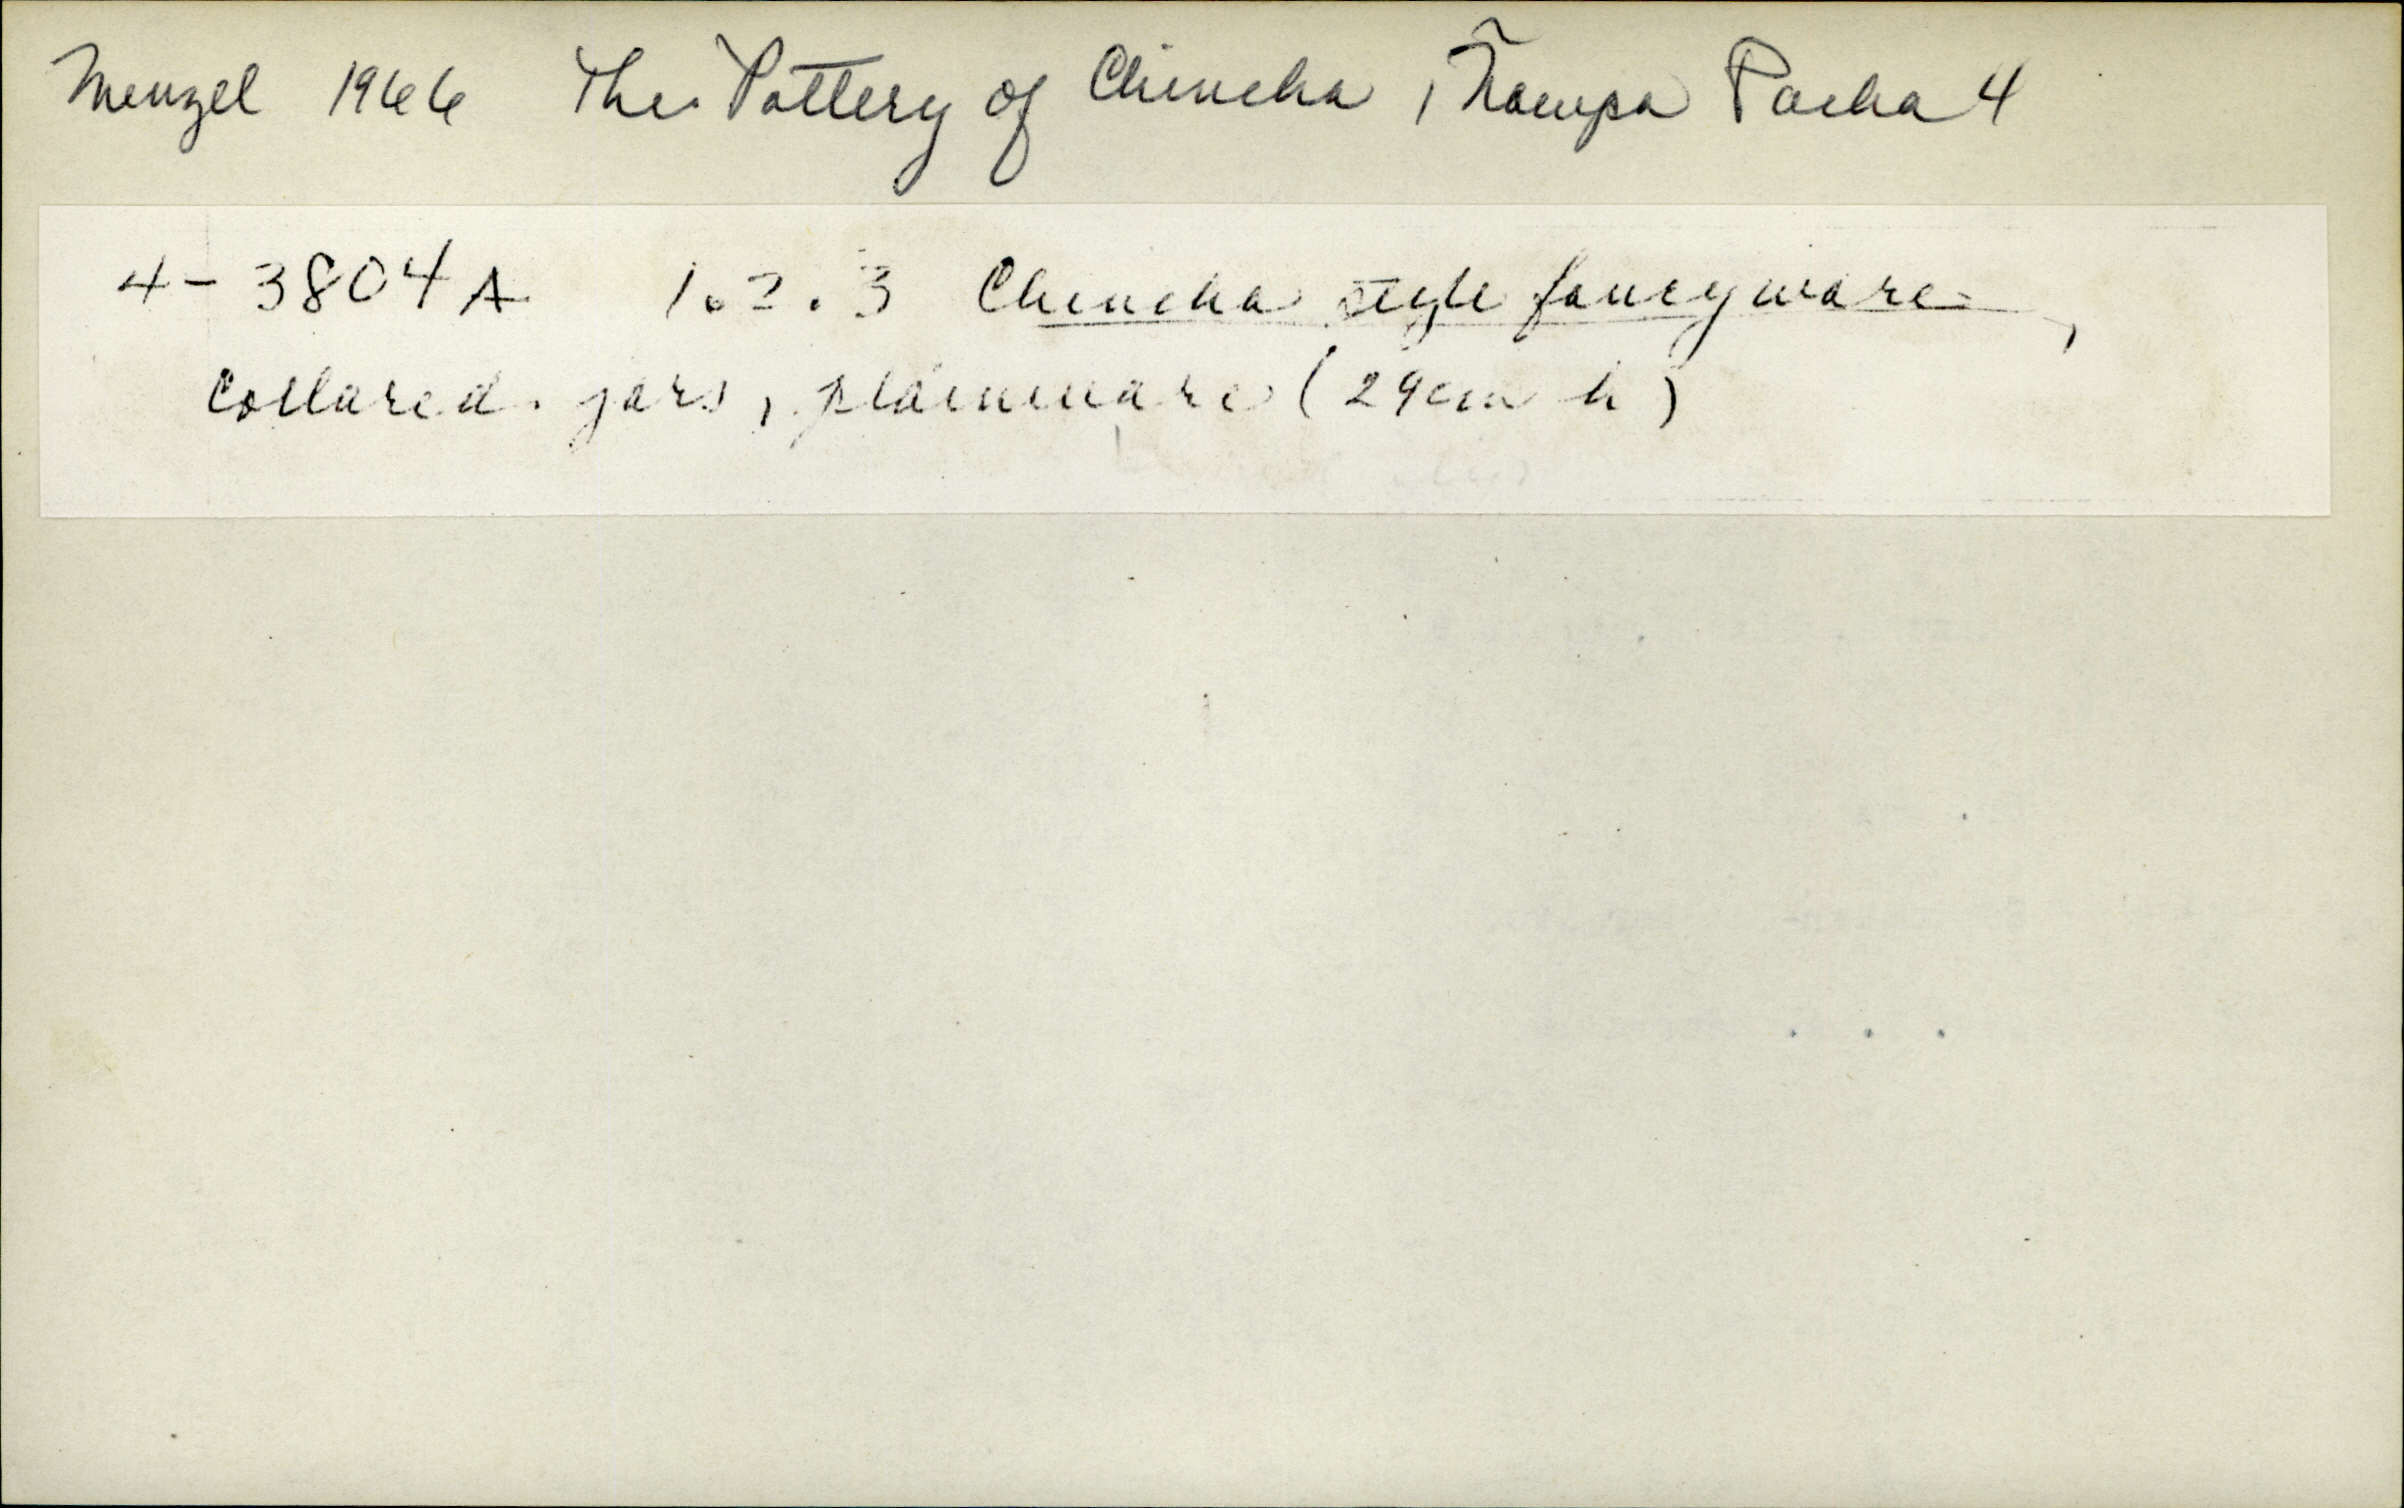 Menzel 1966 The Pottery of Chincha, Ñawpa Pacha 4
4-3804A 1.2.3 Chincha style fancyware,
Collared jars, plainware (29cm h)